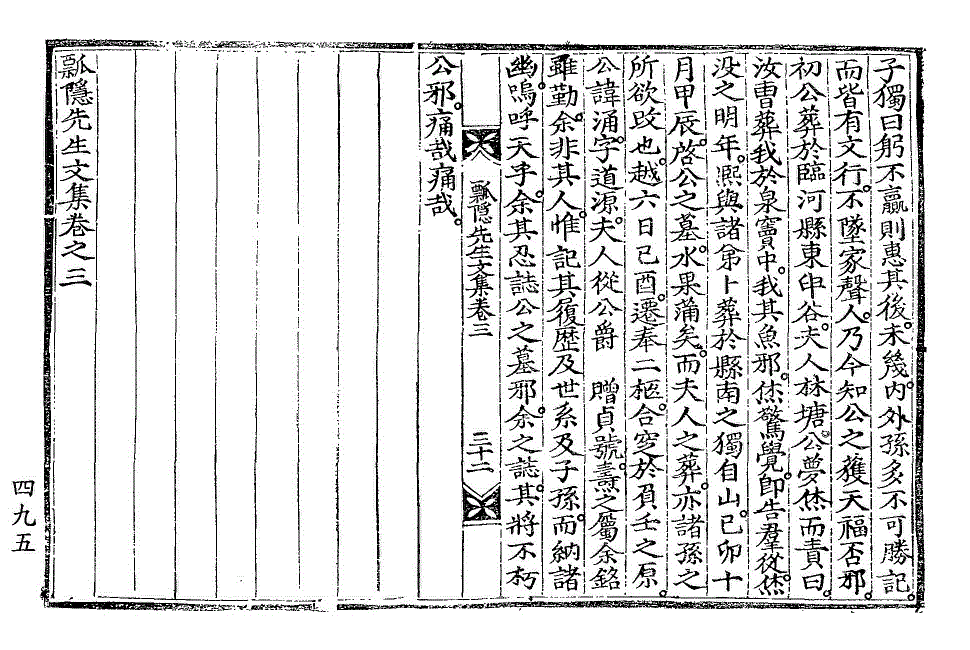 子獨曰躬不贏則惠其後。未幾。內外孫多不可勝記。
而皆有文行。不墜家聲。人乃今知公之獲天福否邪。
初公葬於臨河縣東申谷。夫人林塘。公夢焂而責曰。
汝曹葬我於泉竇中。我其魚邪。焂驚覺。即告羣從。焂
没之明年。熙與諸弟卜葬於縣南之獨自山。已卯十
月甲辰。啓公之墓。水果滿矣。而夫人之葬。亦諸孫之
所欲改也。越六日己酉。遷奉二柩。合窆於負壬之原。
公諱涌。字道源。夫人從公爵 贈貞號。燾之屬余銘
雖勤。余非其人。惟記其履歷及世系及子孫。而納諸
幽。嗚呼天乎。余其忍誌公之墓邪。余之誌。其將不朽
公邪。痛哉痛哉。
瓢隱先生文集卷三 三十二
瓢隱先生文集卷之三
四九五